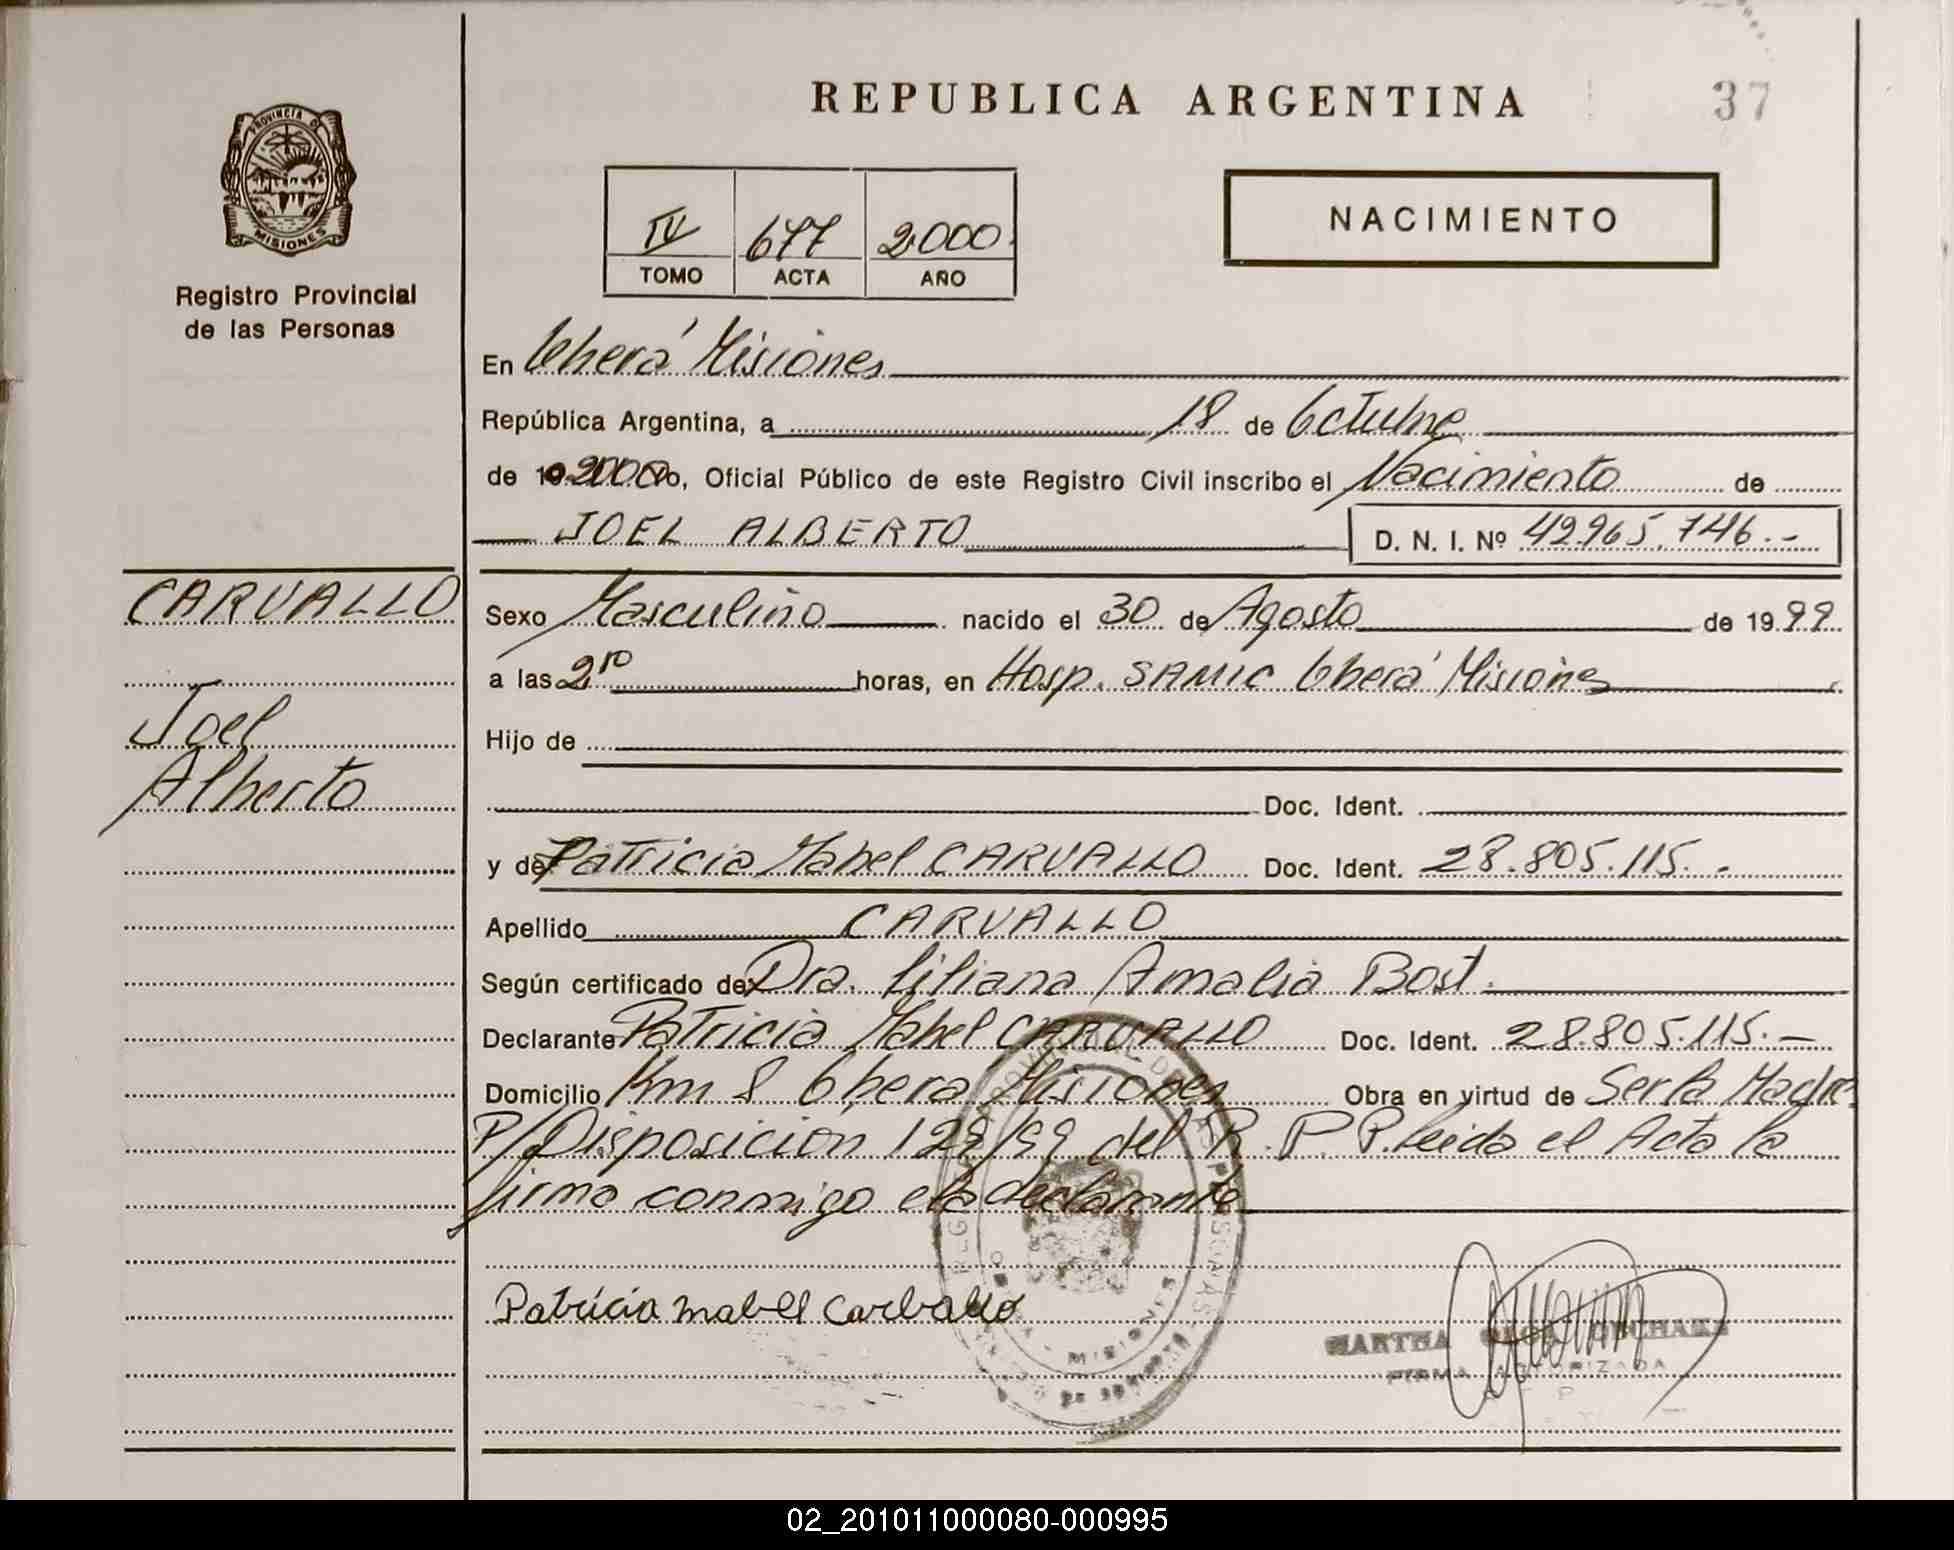 REPUBLICA ARGENTINA
37
PROVINCIA DE
MISIONES
Registro Provincial
de las Personas
NACIMIENTO
IV 677 2000
TOMO ACTA AÑO
En Oberá Misiones
República Argentina, a 18 de Octubre
de 2000 yo, Oficial Público de este Registro Civil inscribo el Nacimiento de
JOEL ALBERTO D. N. I. Nº 42.965.746.-
CARVALLO
Joel
Alberto
Sexo Masculino nacido el 30 de Agosto de 1999
a las 2 10 horas, en Hosp. SAMIC Oberá Misiones
Hijo de
Doc. Ident.
y de Patricia Mabel CARVALLO Doc. Ident. 28.805.115.-
Apellido CARVALLO
Según certificado de Dra. Liliana Amalia Bost.
Declarante Patricia Mabel CARVALLO Doc. Ident. 28.805.115.-
Domicilio Km 8 Oberá Misiones Obra en virtud de Ser la Madre
P/Disposicion 129/99 del R.P.P. Leida el Acta la
firma conmigo la declarante
Patricia mabel Carvallo
MARTHA
FIRMA AUTORIZADA
MISIONES
02_201011000080-000995